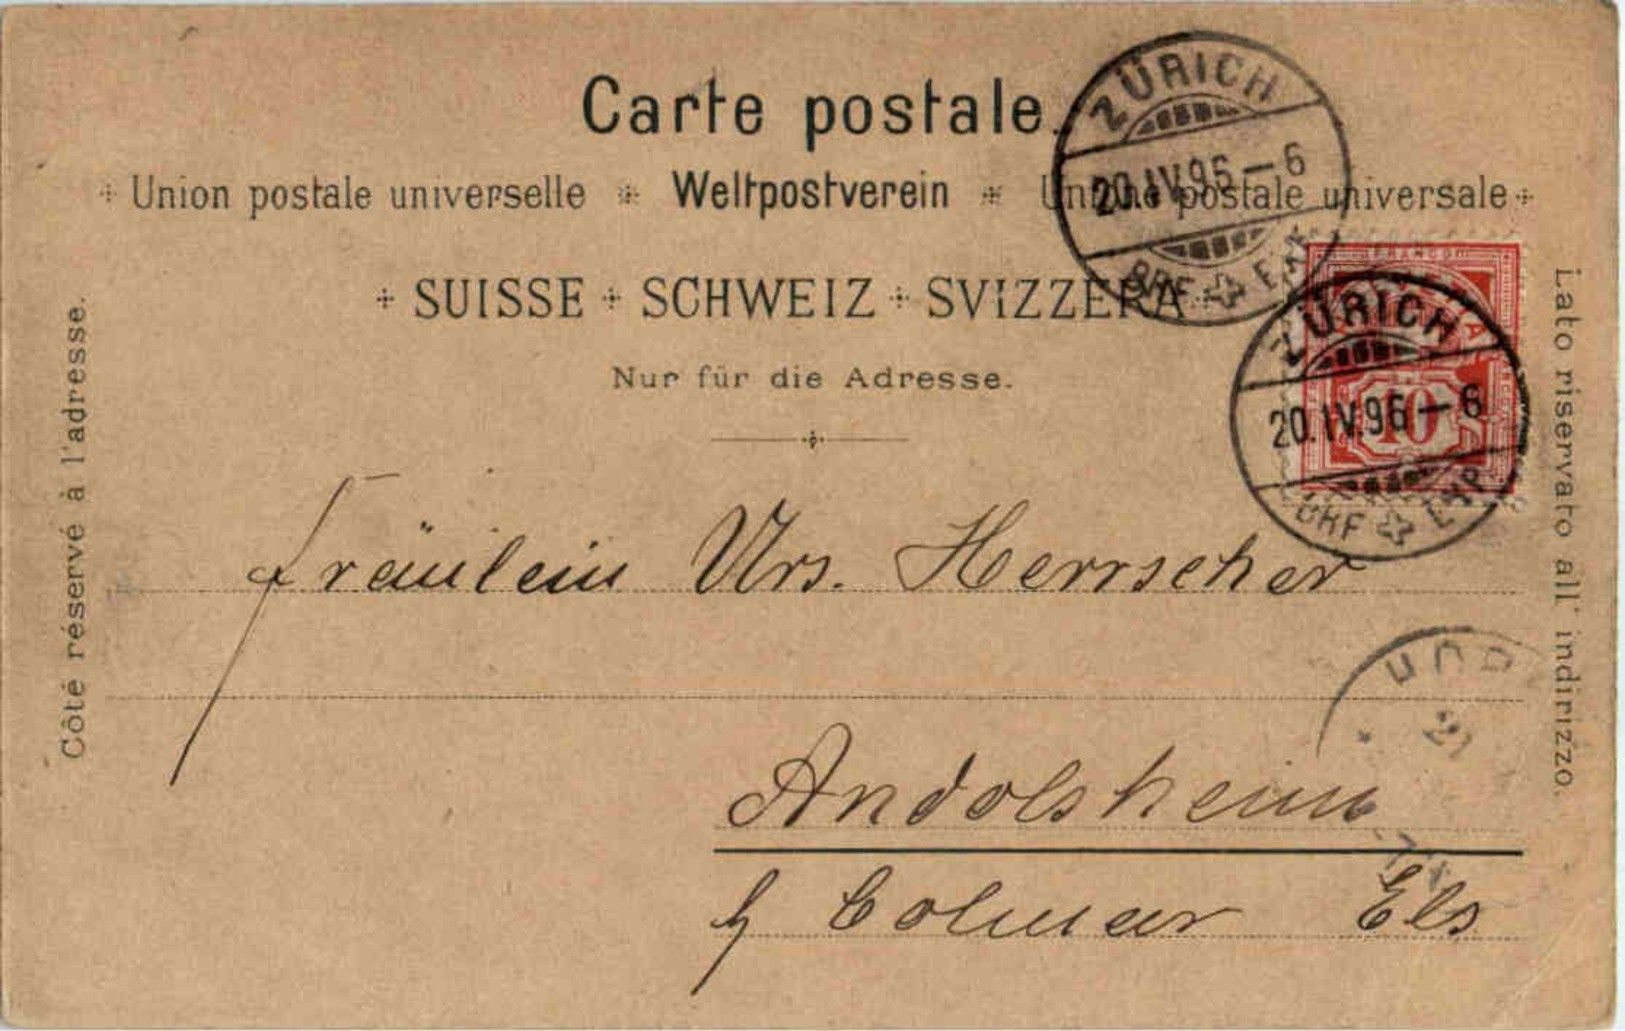 Carte postale.
Union postale universelle * Weltpostverein * Unione postale universale
SUISSE + SCHWEIZ + SVIZZERA
Nur für die Adresse.
Côté réservé à l'adresse.
Lato riservato all' indirizzo.
ZÜRICH
20.IV.96–6
BRF. EXP.
FRANCO
10
ZÜRICH
20.IV.96–6
BRF. EXP.
Fräulein Urs. Herrscher
21
Andolsheim
b/ Colmar Els